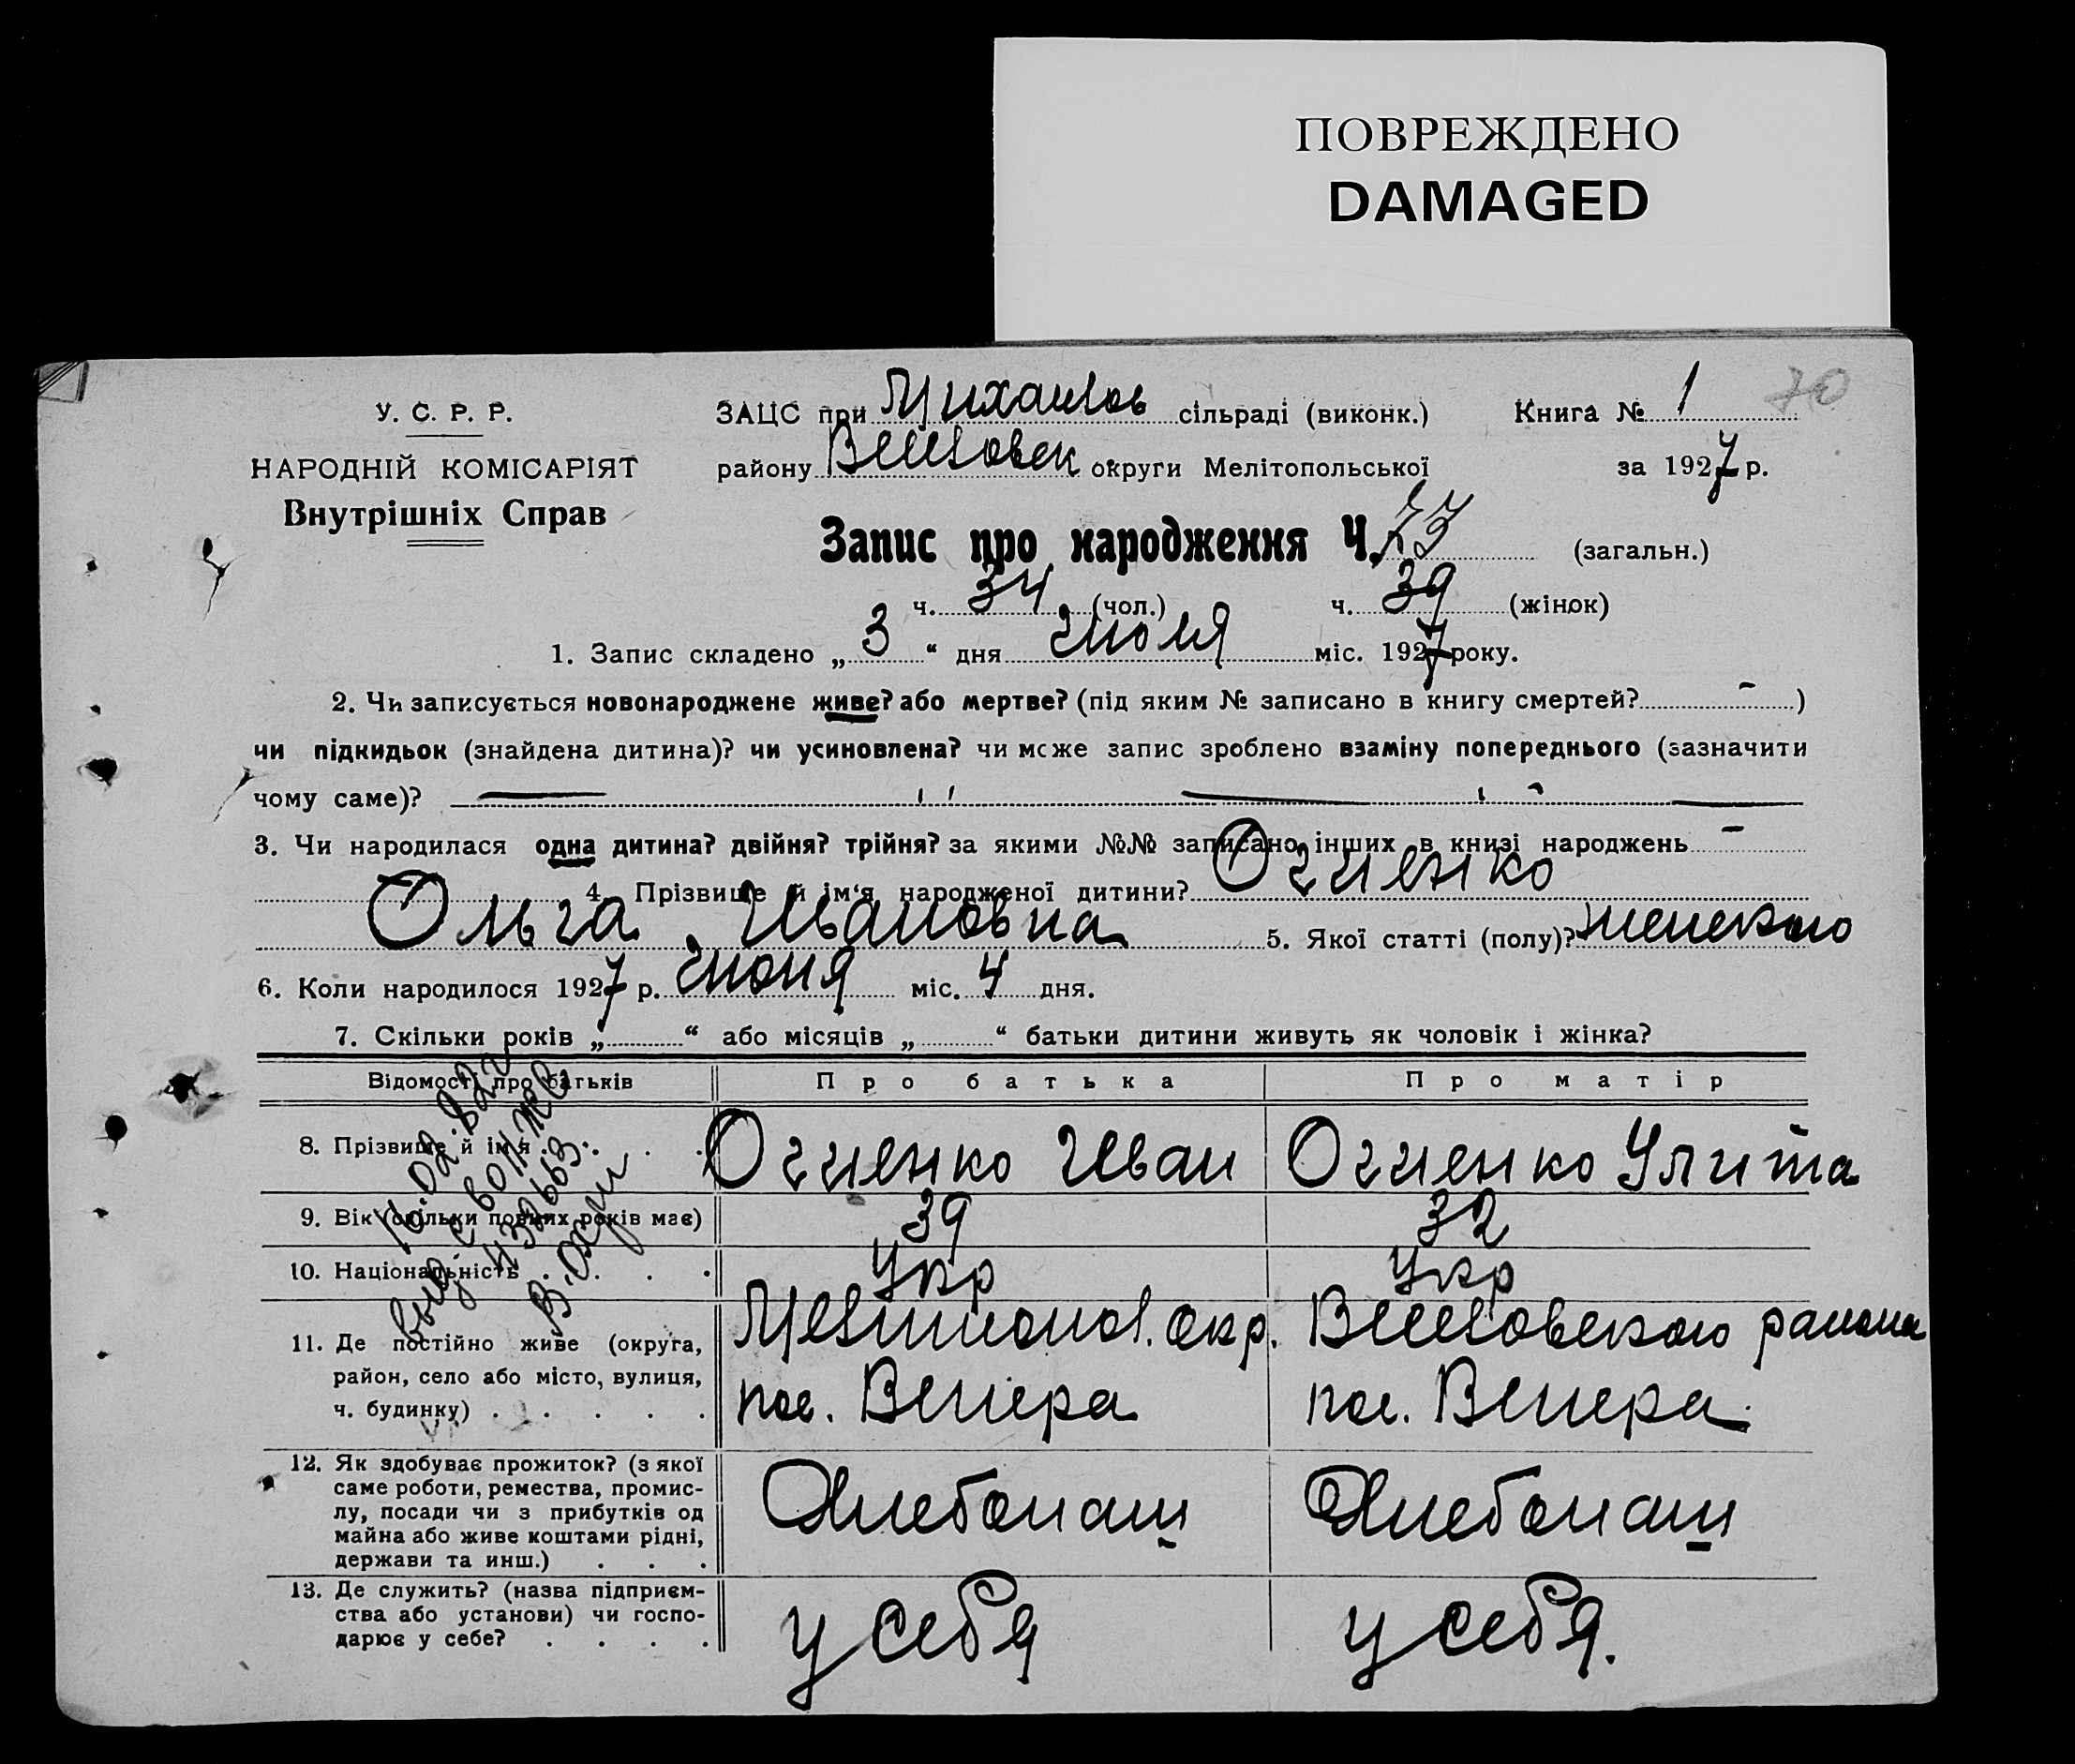 ПОВРЕЖДЕНО
DAMAGED
У. С. Р. Р.
НАРОДНІЙ КОМІСАРІЯТ
Внутрішніх Справ
ЗАЦС при Михайлов сільраді (виконк.)
Книга № 1
70
району Веселовск округи Мелітопольської
за 1927 р.
Запис про народження Ч. 73 (загальн.)
ч. 34 (чол.) ч. 39 (жінок)
1. Запис складено „ 3 “ дня июля міс. 1927 року.
2. Чи записується новонароджене живе? або мертве? (під яким № записано в книгу смертей? - )
чи підкидьок (знайдена дитина)? чи усиновлена? чи може запис зроблено взаміну попереднього (зазначити
чому саме)?
3. Чи народилася одна дитина? двійня? трійня? за якими №№ записано інших в книзі народжень -
4. Прізвище й ім‘я народженої дитини? Огиенко
Ольга Ивановна 5. Якої статті (полу)? женского
6. Коли народилося 1927 р. июня міс. 4 дня.
7. Скільки років „ “ або місяців „ “ батьки дитини живуть як чоловік і жінка?
Відомості про батьків
Про батька
Про матір
8. Прізвище й ім‘я
Огиенко Иван
Огиенко Улита
9. Вік (скільки повних років має)
39
32
10. Національність
Укр
Укр
11. Де постійно живе (округа,
район, село або місто, вулиця,
ч. будинку)
Мелитопол. окр.
пос. Венера
Веселовского района
пос. Венера
12. Як здобуває прожиток? (з якої
саме роботи, ремества, промис-
лу, посади чи з прибутків од
майна або живе коштами рідні,
держави та инш.)
Хлебопаш
Хлебопаш
13. Де служить? (назва підприєм-
ства або установи) чи госпо-
дарює у себе?
у себя
у себя.